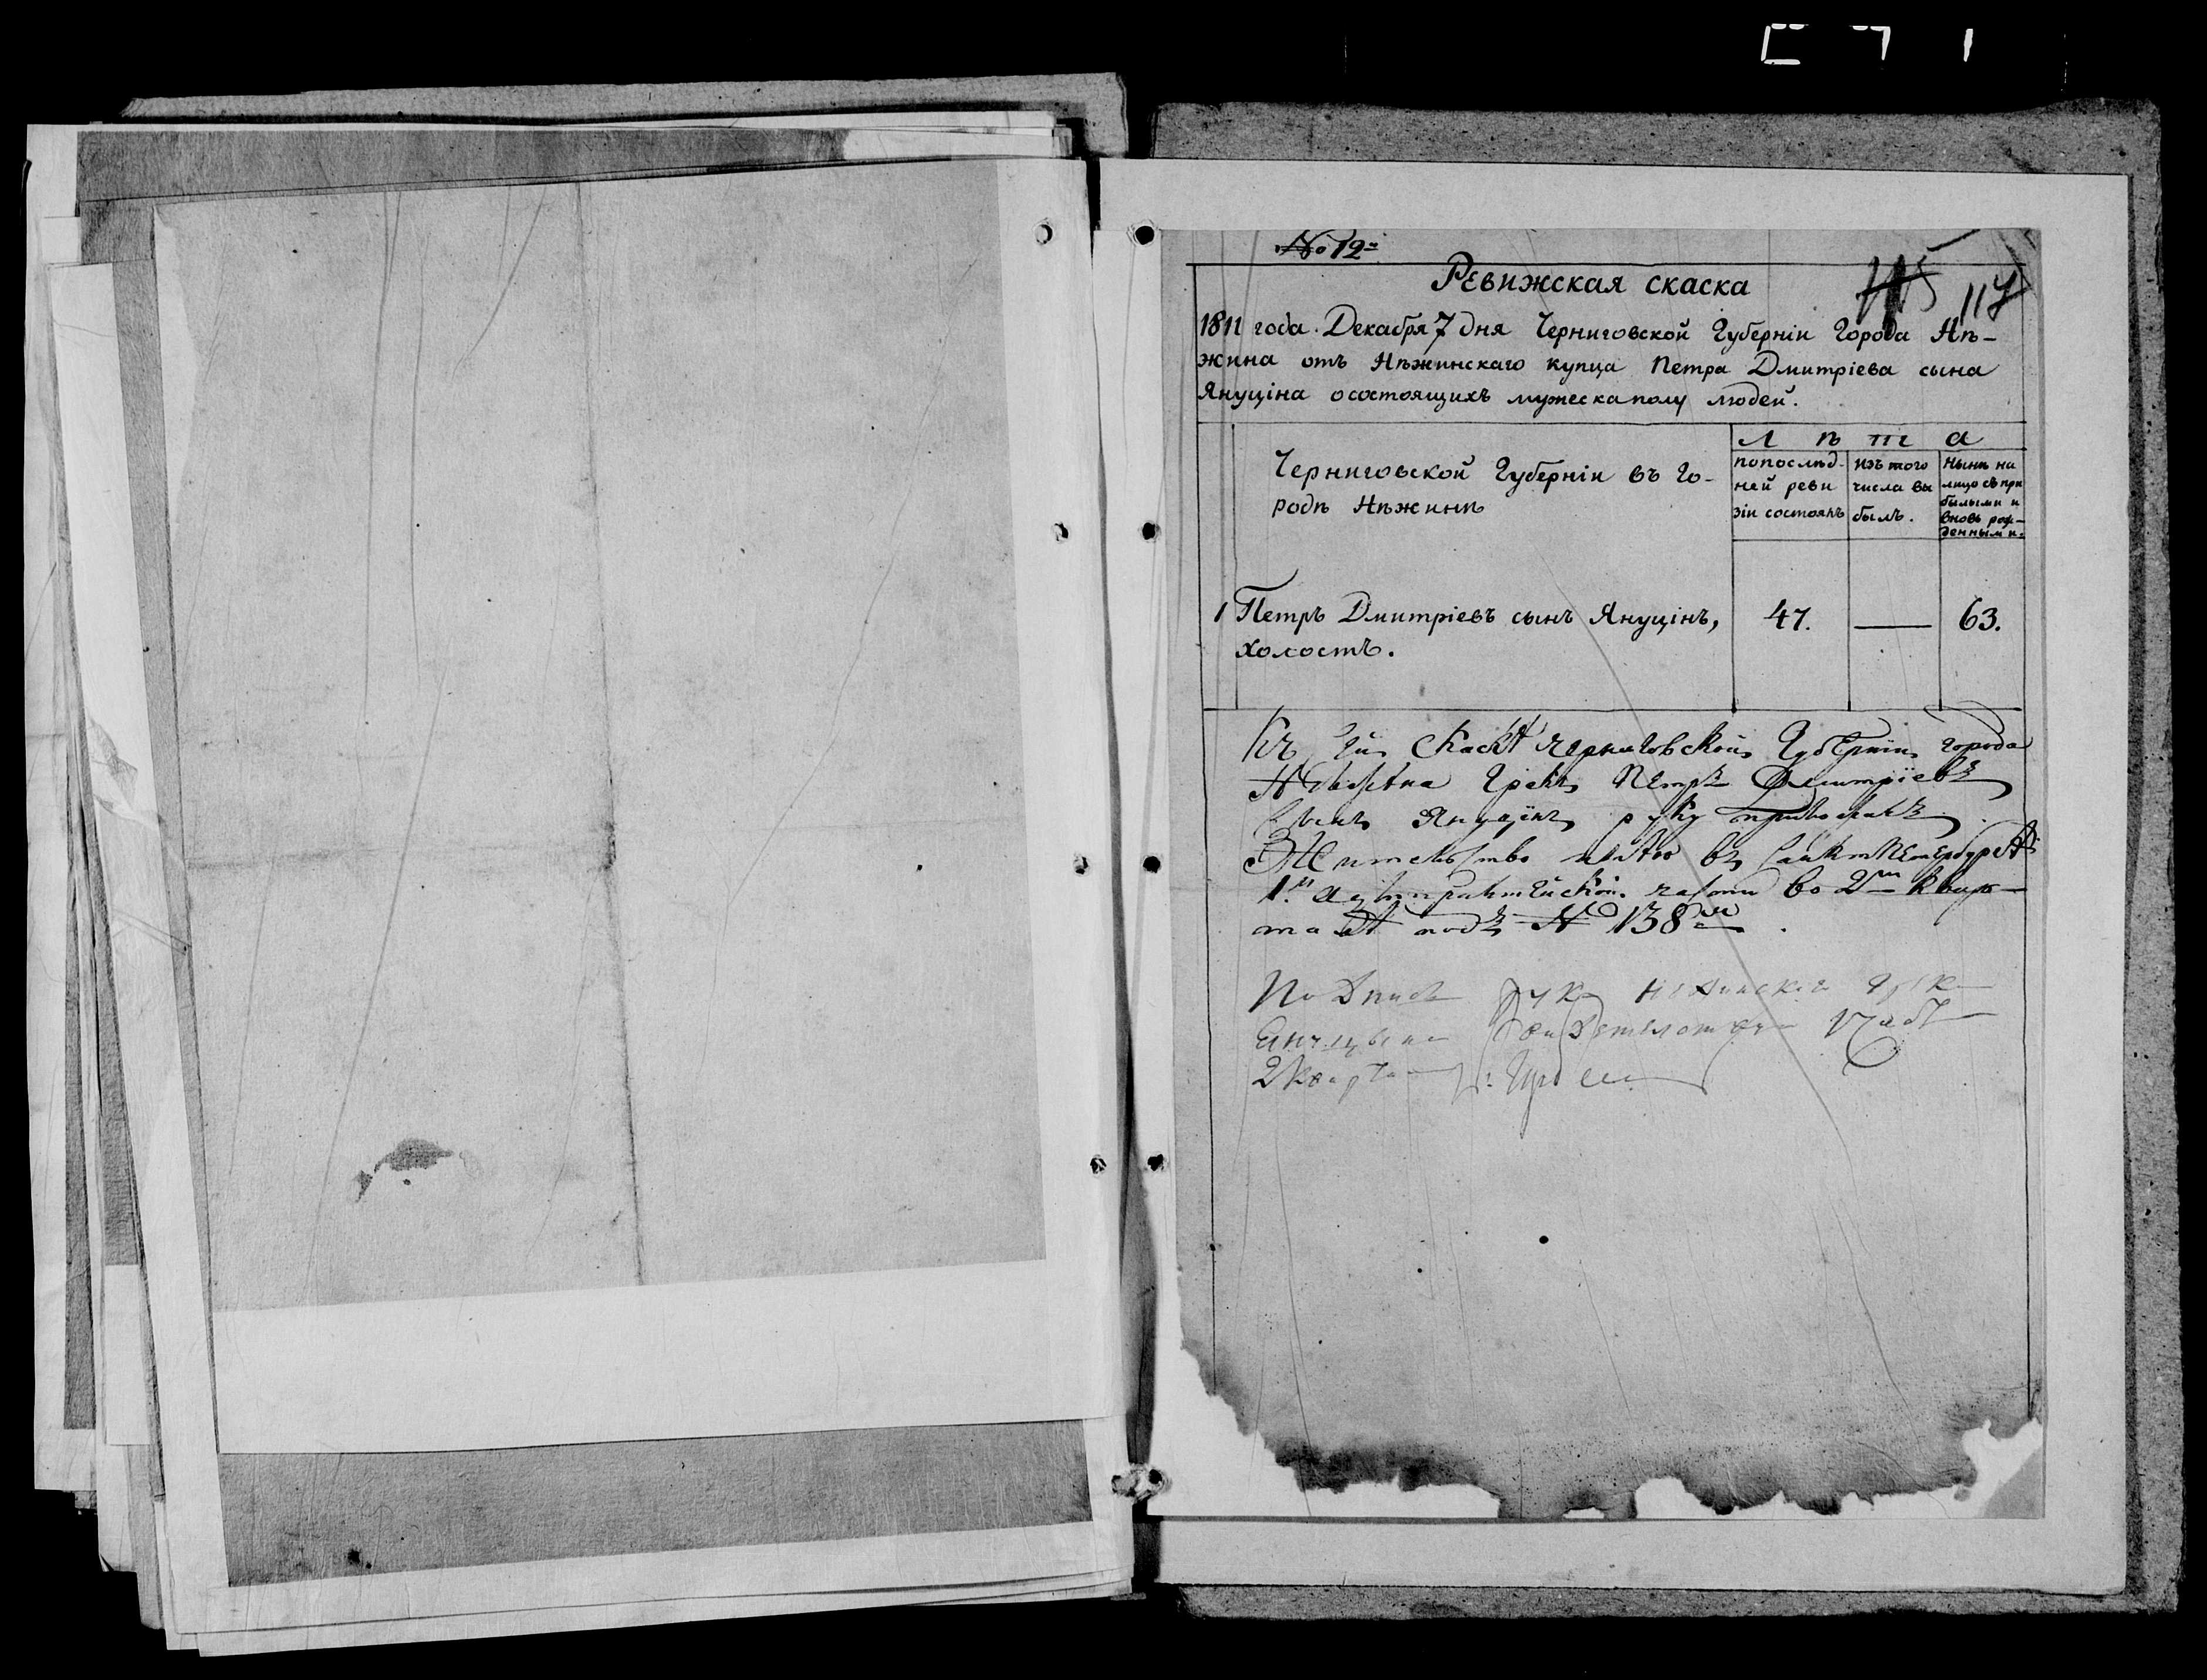 № 12й
Ревижская скаска
115 117
1811 года Декабря 7 дня Черниговской Губерніи Города Нѣ-
жина отъ Нѣжинскаго купца Петра Дмитріева сына
Януціна о состоящихъ мужеска полу людей.
Л ѣ т а
Черниговской Губерніи въ Го-
родѣ Нѣжинѣ
по послѣд-
ней реви
зіи состоялъ
изъ того
числа вы
былъ.
Нынѣ на
лицо съ при
былыми и
вновь рож-
денными.
1 Петръ Дмитріевъ сынъ Януцінъ, 47. — 63.
холостъ.
Къ сей скаскѣ черниговской Губерніи города
Нѣжина Грекъ Петръ Дмитріевъ
сынъ Януцінъ руку приложилъ
Жительство имѣю въ Санктпетербургѣ
1й адмиралтейской части во 2м квар-
талѣ подъ № 138м
Подпись руки Нѣжинскаго Грека
2 Кварта